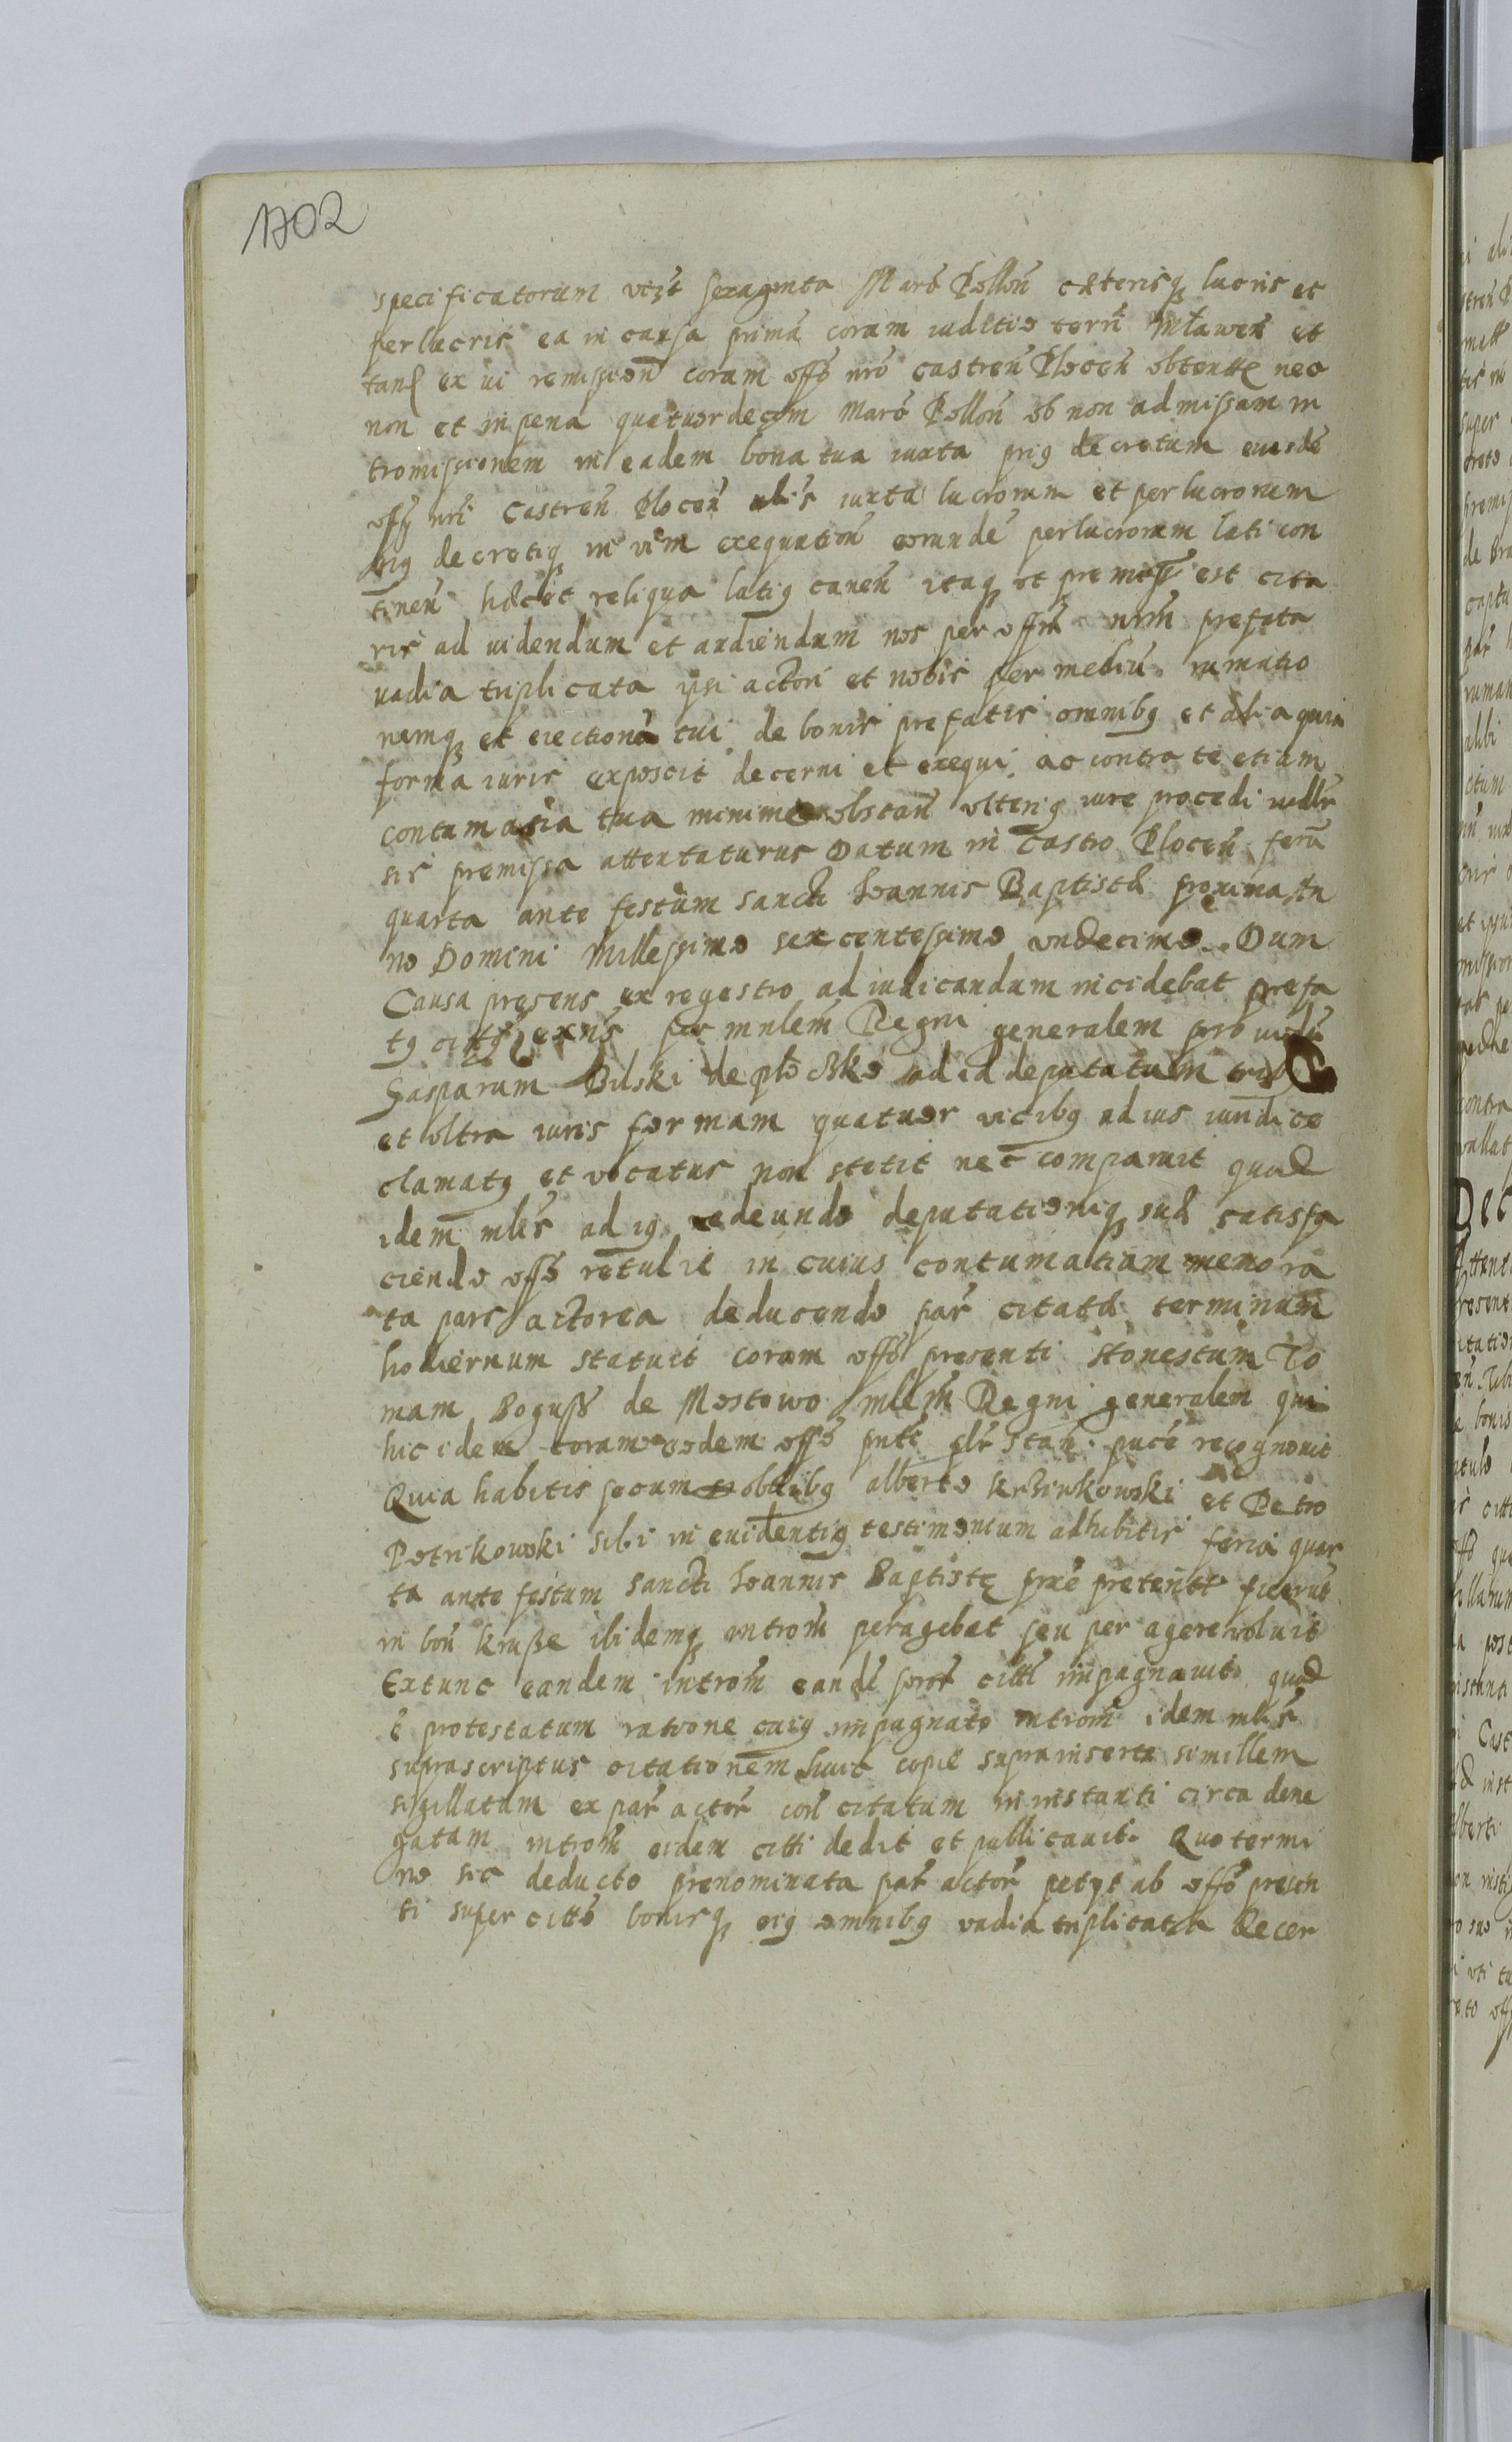 1702
specificatorum vczt sexaginta Marc̃ Pollon̄ cæterisq lucris et
perlucris ea in causa prima coram iuditio terrı̃ Mławen̄ et
tan̄q ex ui remission̄ coram offo nr̃o castren̄ Plocen̄ obtentę nec
non et in pena quatuordecim Marc̃ Pollon̄ ob non admissam in
tromissionem in eadem bona tua iuxta prig decretum eiusdẽ
offy nr̃i Castren̄ Plocen̄ iuxta lucrorum et perlucrorum
prig decretiq in vim exequution̄ eorundẽ perlucrorum lati con
tinen̄ hæc et reliqua latig canen̄ itaq ut premiss̃ est cita
ris ad uidendum et audiendum nos per offm̄ nrm̄ prefata
uadia triplicata ipsi actori et nobis per mediũ rumatio
nemq et eiectionẽ tui de bonis prefatis omnibg et alia quia
forma iuris exposcit decerni et exequi ac contra te etiam
contumacia tua minime obstan̄ vlterig iure procedi iudlr̃
sis premissa attentaturus Datum in Castro Plocen̄ feria
quarta ante festum sancti Ioannis Baptistæ proxima An
no Domini Millessimo sexcentessimo vndecimo. Dum
Causa presens ex regestro ad iudicandum incidebat prefa
tg per mnlem̄ Regni generalem prõ
Gasparum Bilski de płoczko ad id deputatum
et vltra iuris formam quatuor vicibg ad ius iuridice
clamatg et vocatus non stetit nec comparuit quod
idem mlis̃ ad ig redeundo deputationiq suæ satisfa
ciendo offo retulit in cuius contumatiam memora
ta pars actorea deducendo par̃ citatæ terminum
hodiernum statuit coram offo presenti Honestum To
mam Boguss de Mostowo mlem̄ Regni generalem qui
hic idem coram eodem offo pntĩ plr̃ stan̄ pucẽ recognouit
Quia habitis secum nobilibg alberto Krziwkowski et Petro
Petrikowski sibi in euidentig testimonium adhibitis feria quar
ta ante festum sancti Ioannis Baptistę prxẽ preterite ficerũt
in bon̄ krusze ibidemq introm̄ peragebat seu per agere voluit
Extunc eandem introm̄ eandẽ citti impugnauit quod
ẽ protestatum ratione cuig impugnate introm̄ idem mlis̃
suprascriptus citationem huic copiæ suprainserte simillem
sigillatam ex par̃ actor̃ con̄ citatum in instanti circa dene
gatam introm̄ eidem citti dedit et publicauit. Quo termi
no sic deducto prenominata par̃ actor̃ petyt ab offo presen
ti super citto bonisq eig omnibg vadia triplicata decer